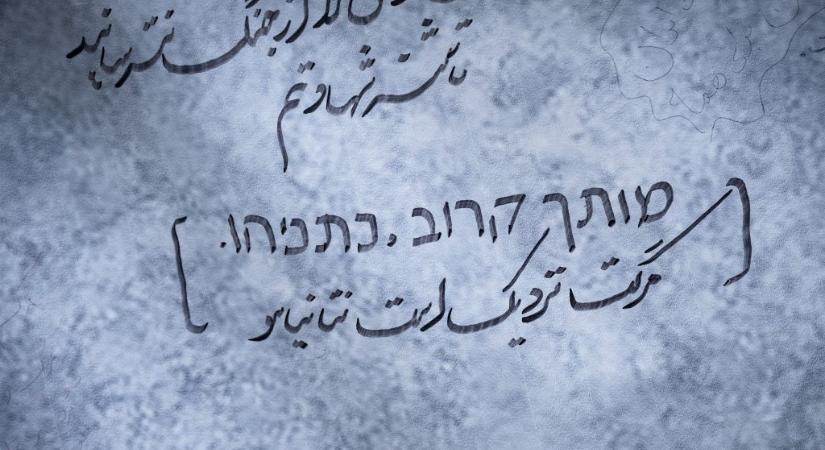 از جنگ نترسانید
ما تشنه شهادتیم
מותך קרוב .נתניהו.
مرگت نزدیک است نتانیاهو